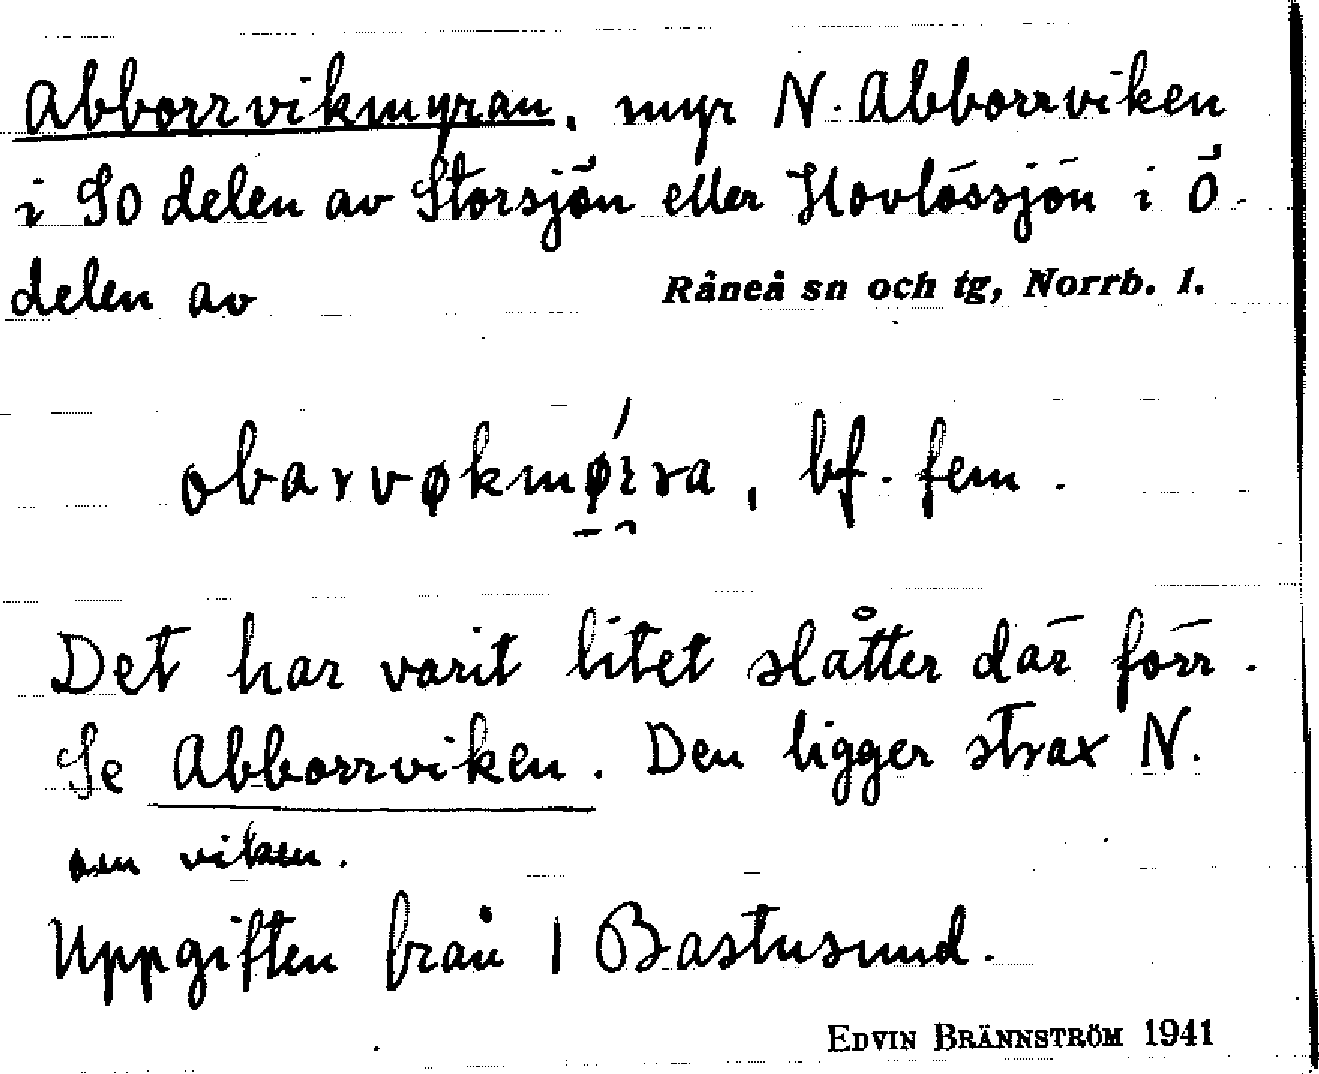 Abborrvikmyran, myr N. Abborrviken
i SO delen av Storsjön eller Hovlössjön i Ö.
delen av Råneå sn och tg, Norrb. l.
bf. fem.
Det har varit litet slåtter där förr.
Se Abborrviken. Den ligger strax N.
om viken.
Uppgiften från 1 Bastusund.
EDVIN BRÄNNSTRÖM 1941